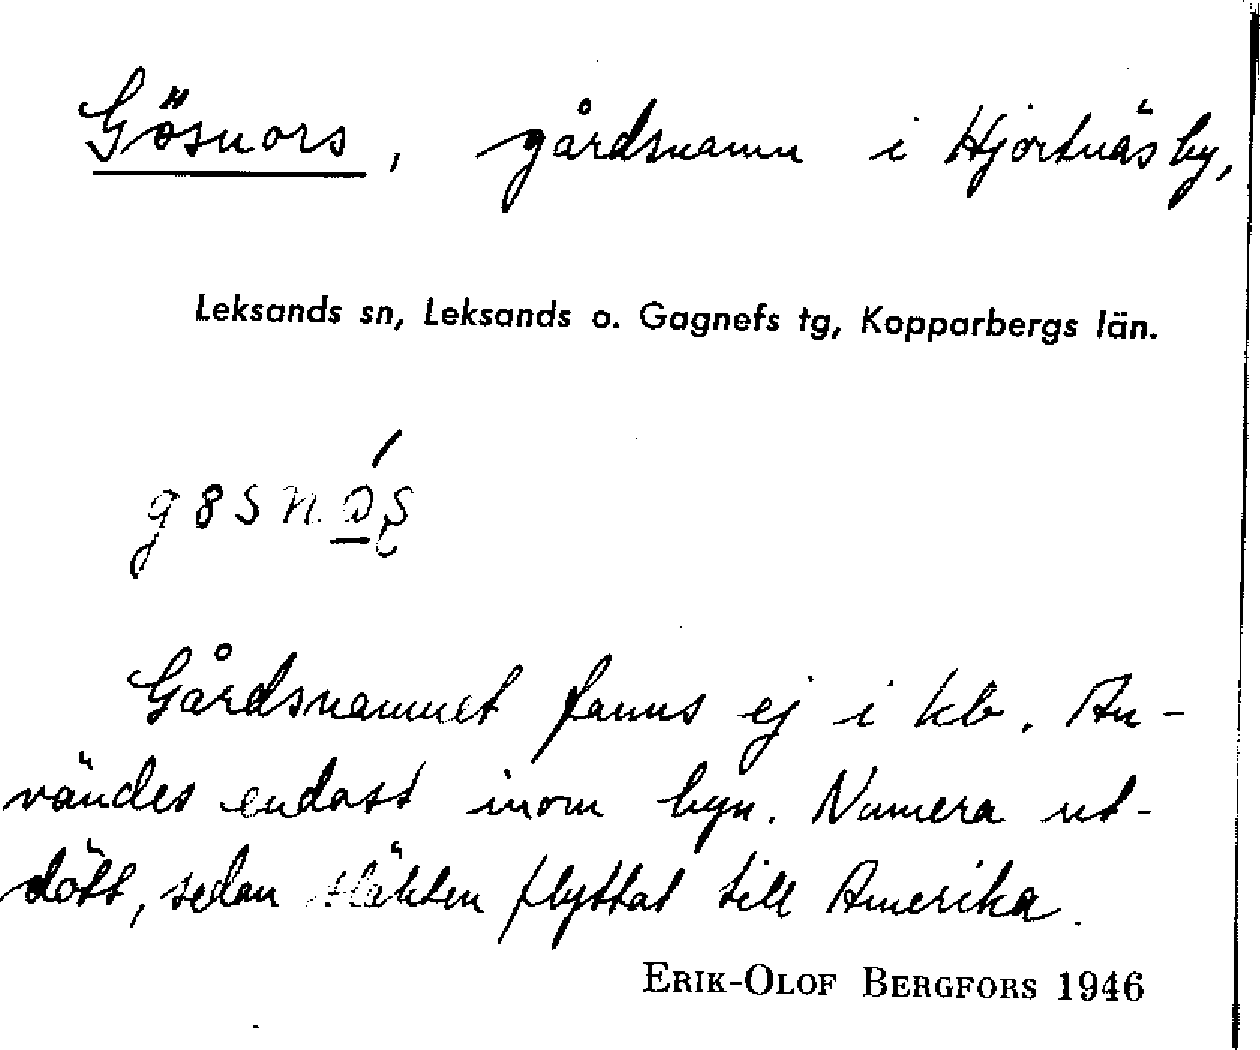 Gösnors, gårdsnamn i Hjortnäs by,
Leksands sn, Leksands o. Gagnefs tg, Kopparbergs län.
Gårdsnamnet fanns ej i kb. An-
vändes endast inom byn. Numera ut-
dött, sedan släkten flyttat till Amerika.
ERIK-OLOF BERGFORS 1946